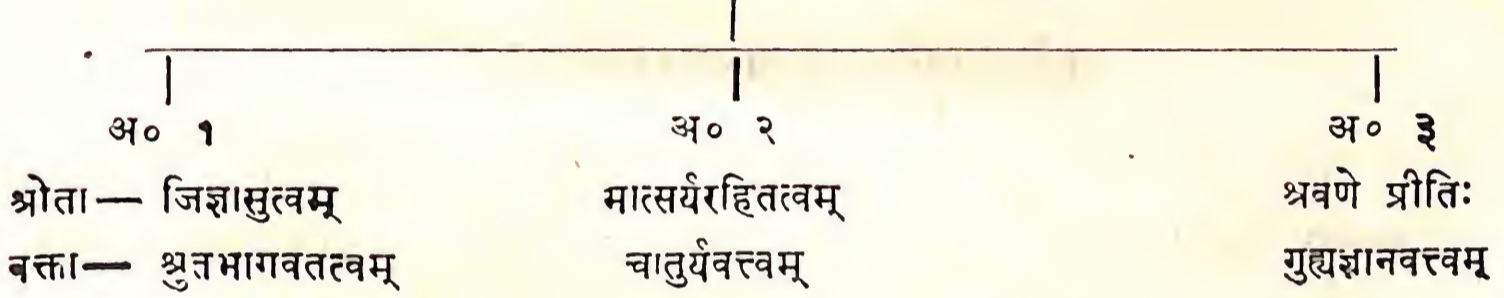 अ० १ अ० २ अ० ३
श्रोता— जिज्ञासुत्वम् मात्सर्यरहितत्वम् श्रवणे प्रीतिः
वक्ता— श्रुतभागवतत्वम् चातुर्यवत्त्वम् गुह्यज्ञानवत्त्वम्